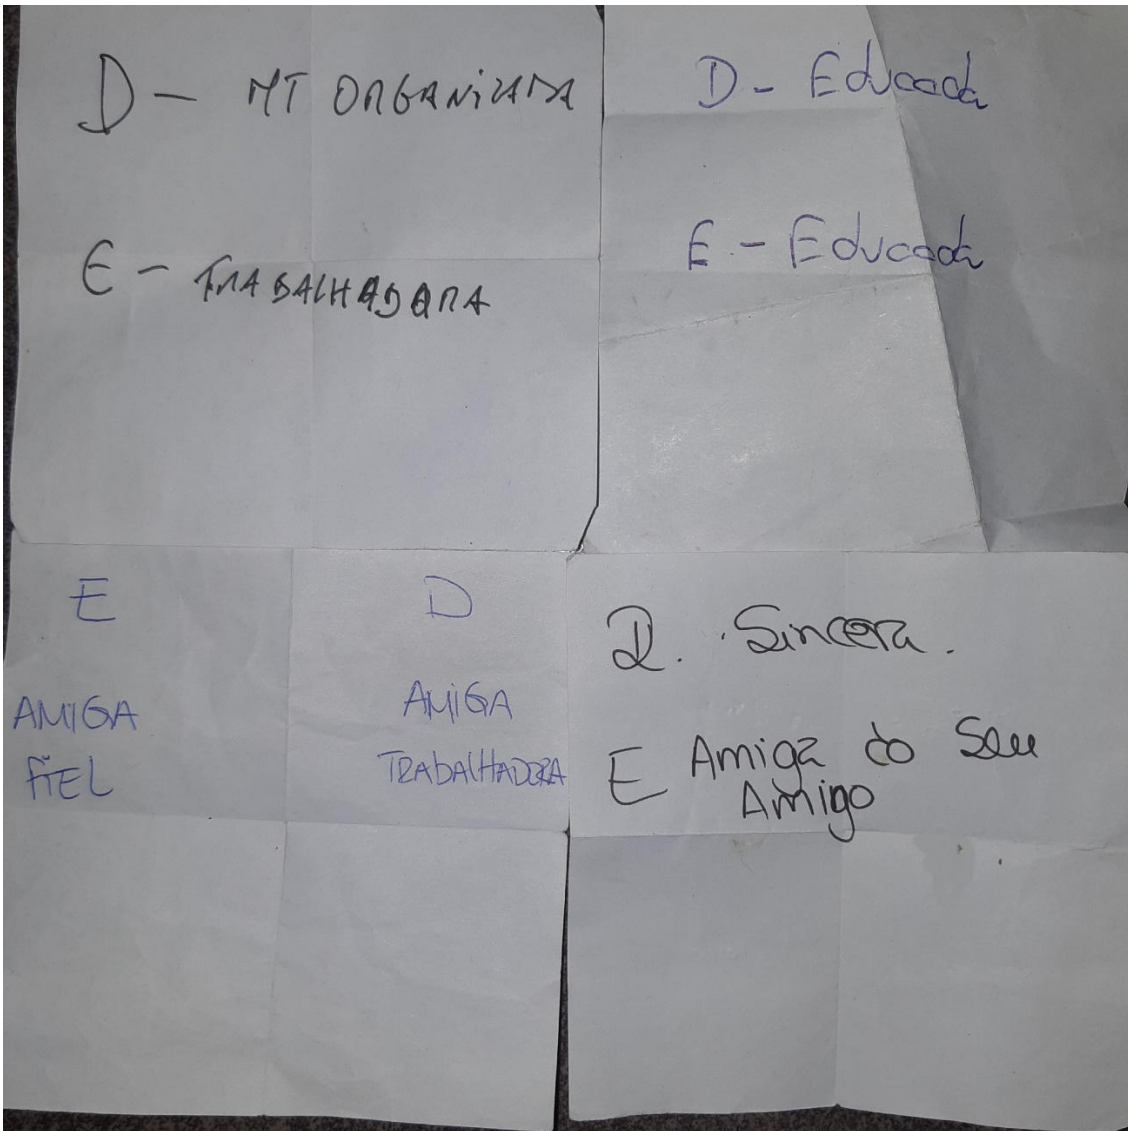 D - MT ORGANIZADA
E - TRABALHADORA
D - Educada
E - Educada
E
AMIGA
FIEL
D
AMIGA
TRABALHADORA
D. Sincera.
E Amiga do Seu
Amigo